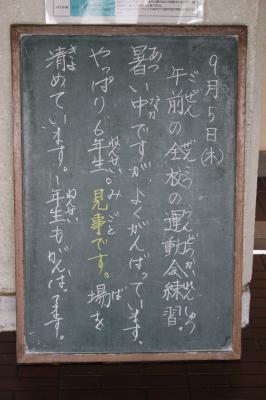 9月5日(木)
午前の全校の運動会練習。
暑い中ですが、よくがんばっています。
やっぱり6年生。見事です。場を
清めています。1年生もがんばってます。